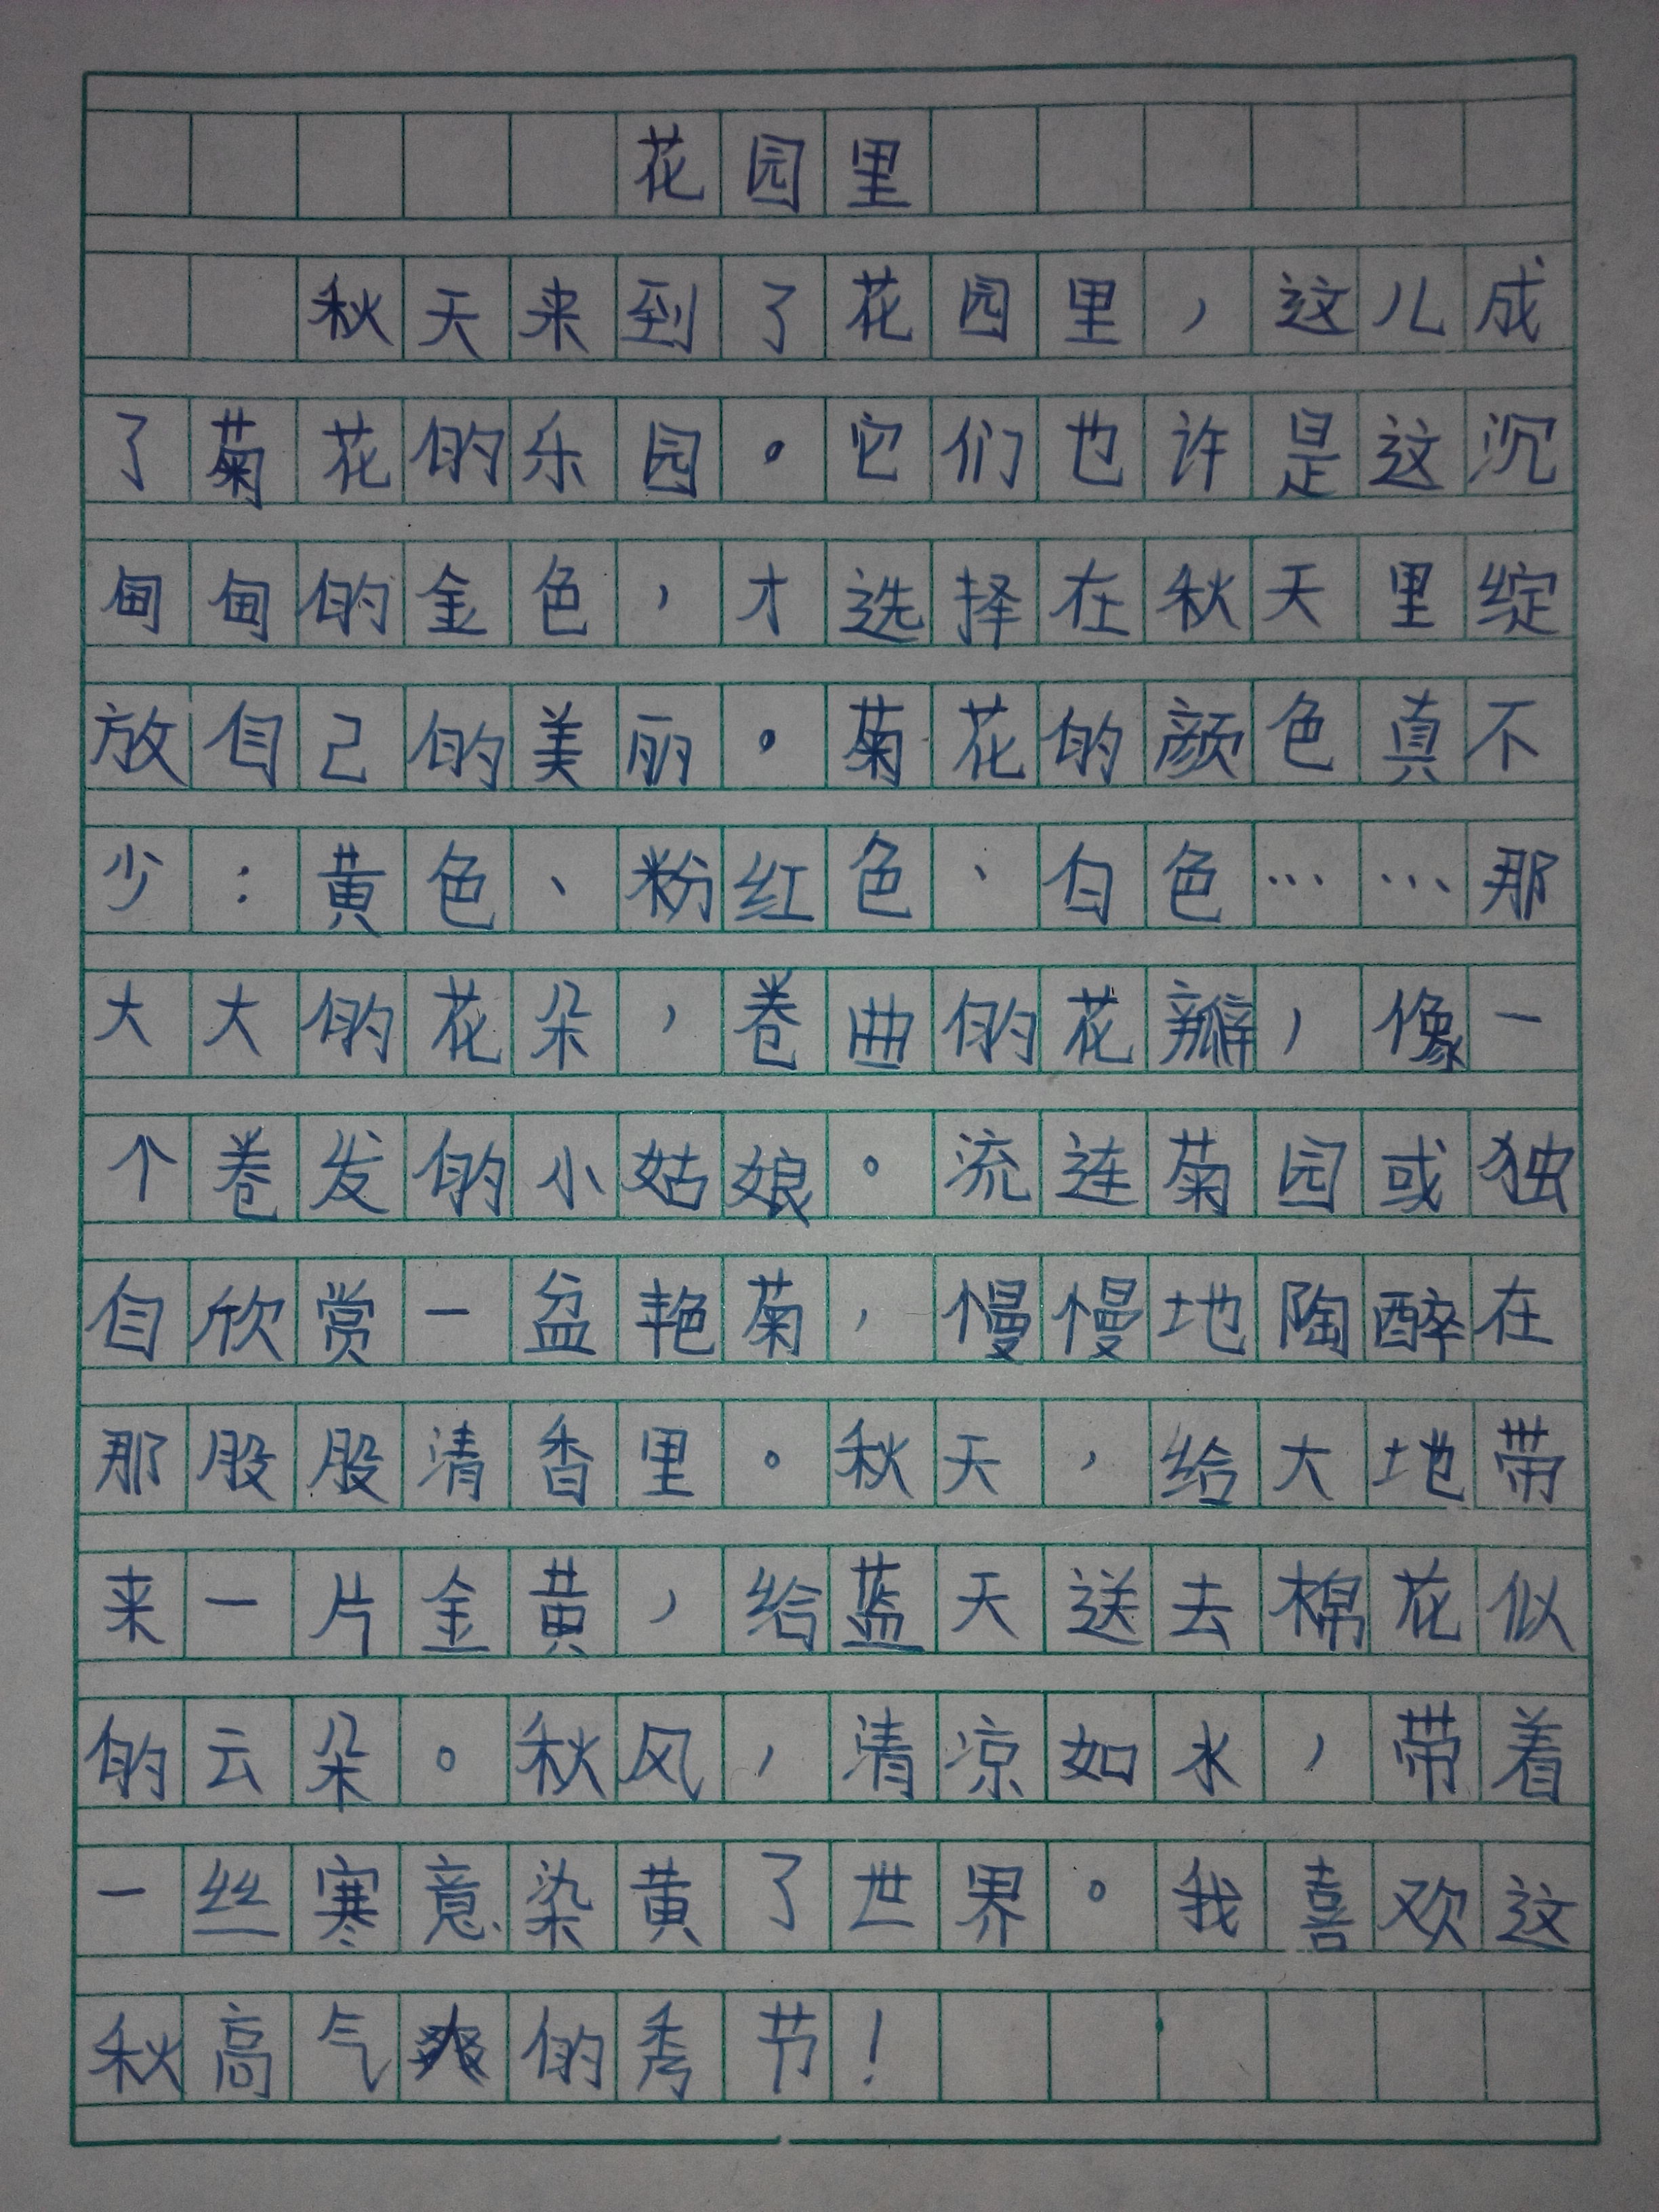 花园里
秋天来到了花园里，这儿成
了菊花的乐园。它们也许是这沉
甸甸的金色，才选择在秋天里绽
放自己的美丽。菊花的颜色真不
少：黄色、粉红色、白色……那
大大的花朵，卷曲的花瓣，像一
个卷发的小姑娘。流连菊园或独
自欣赏一盆艳菊，慢慢地陶醉在
那股股清香里。秋天，给大地带
来一片金黄，给蓝天送去棉花似
的云朵。秋风，清凉如水，带着
一丝寒意染黄了世界。我喜欢这
秋高气爽的秀节！